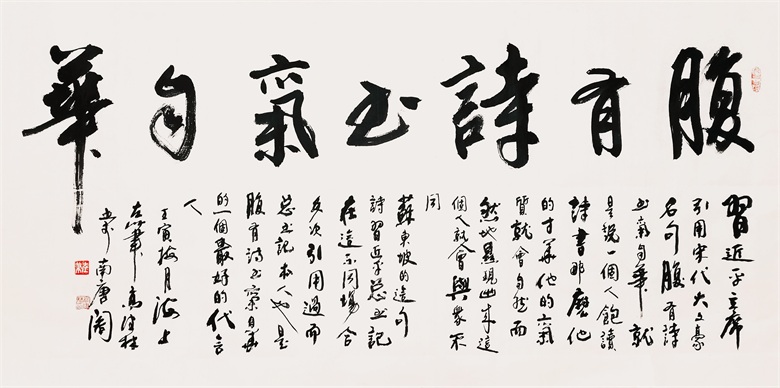 腹有詩书氣自華
習近平主席
引用宋代大文豪
名句腹有詩
书氣自華就
是說一個人飽讀
詩書那麼他
的才華他的氣
質就會自然而
然地显現出来這
個人就會與衆不
同
蘇東坡的這句
詩習近平总书記
在這不同場合
多次引用過而
总书記本人也是
腹有诗书氣自華
的一個最好的代言
人
壬寅梅月海上
左筆
书於南唐阁